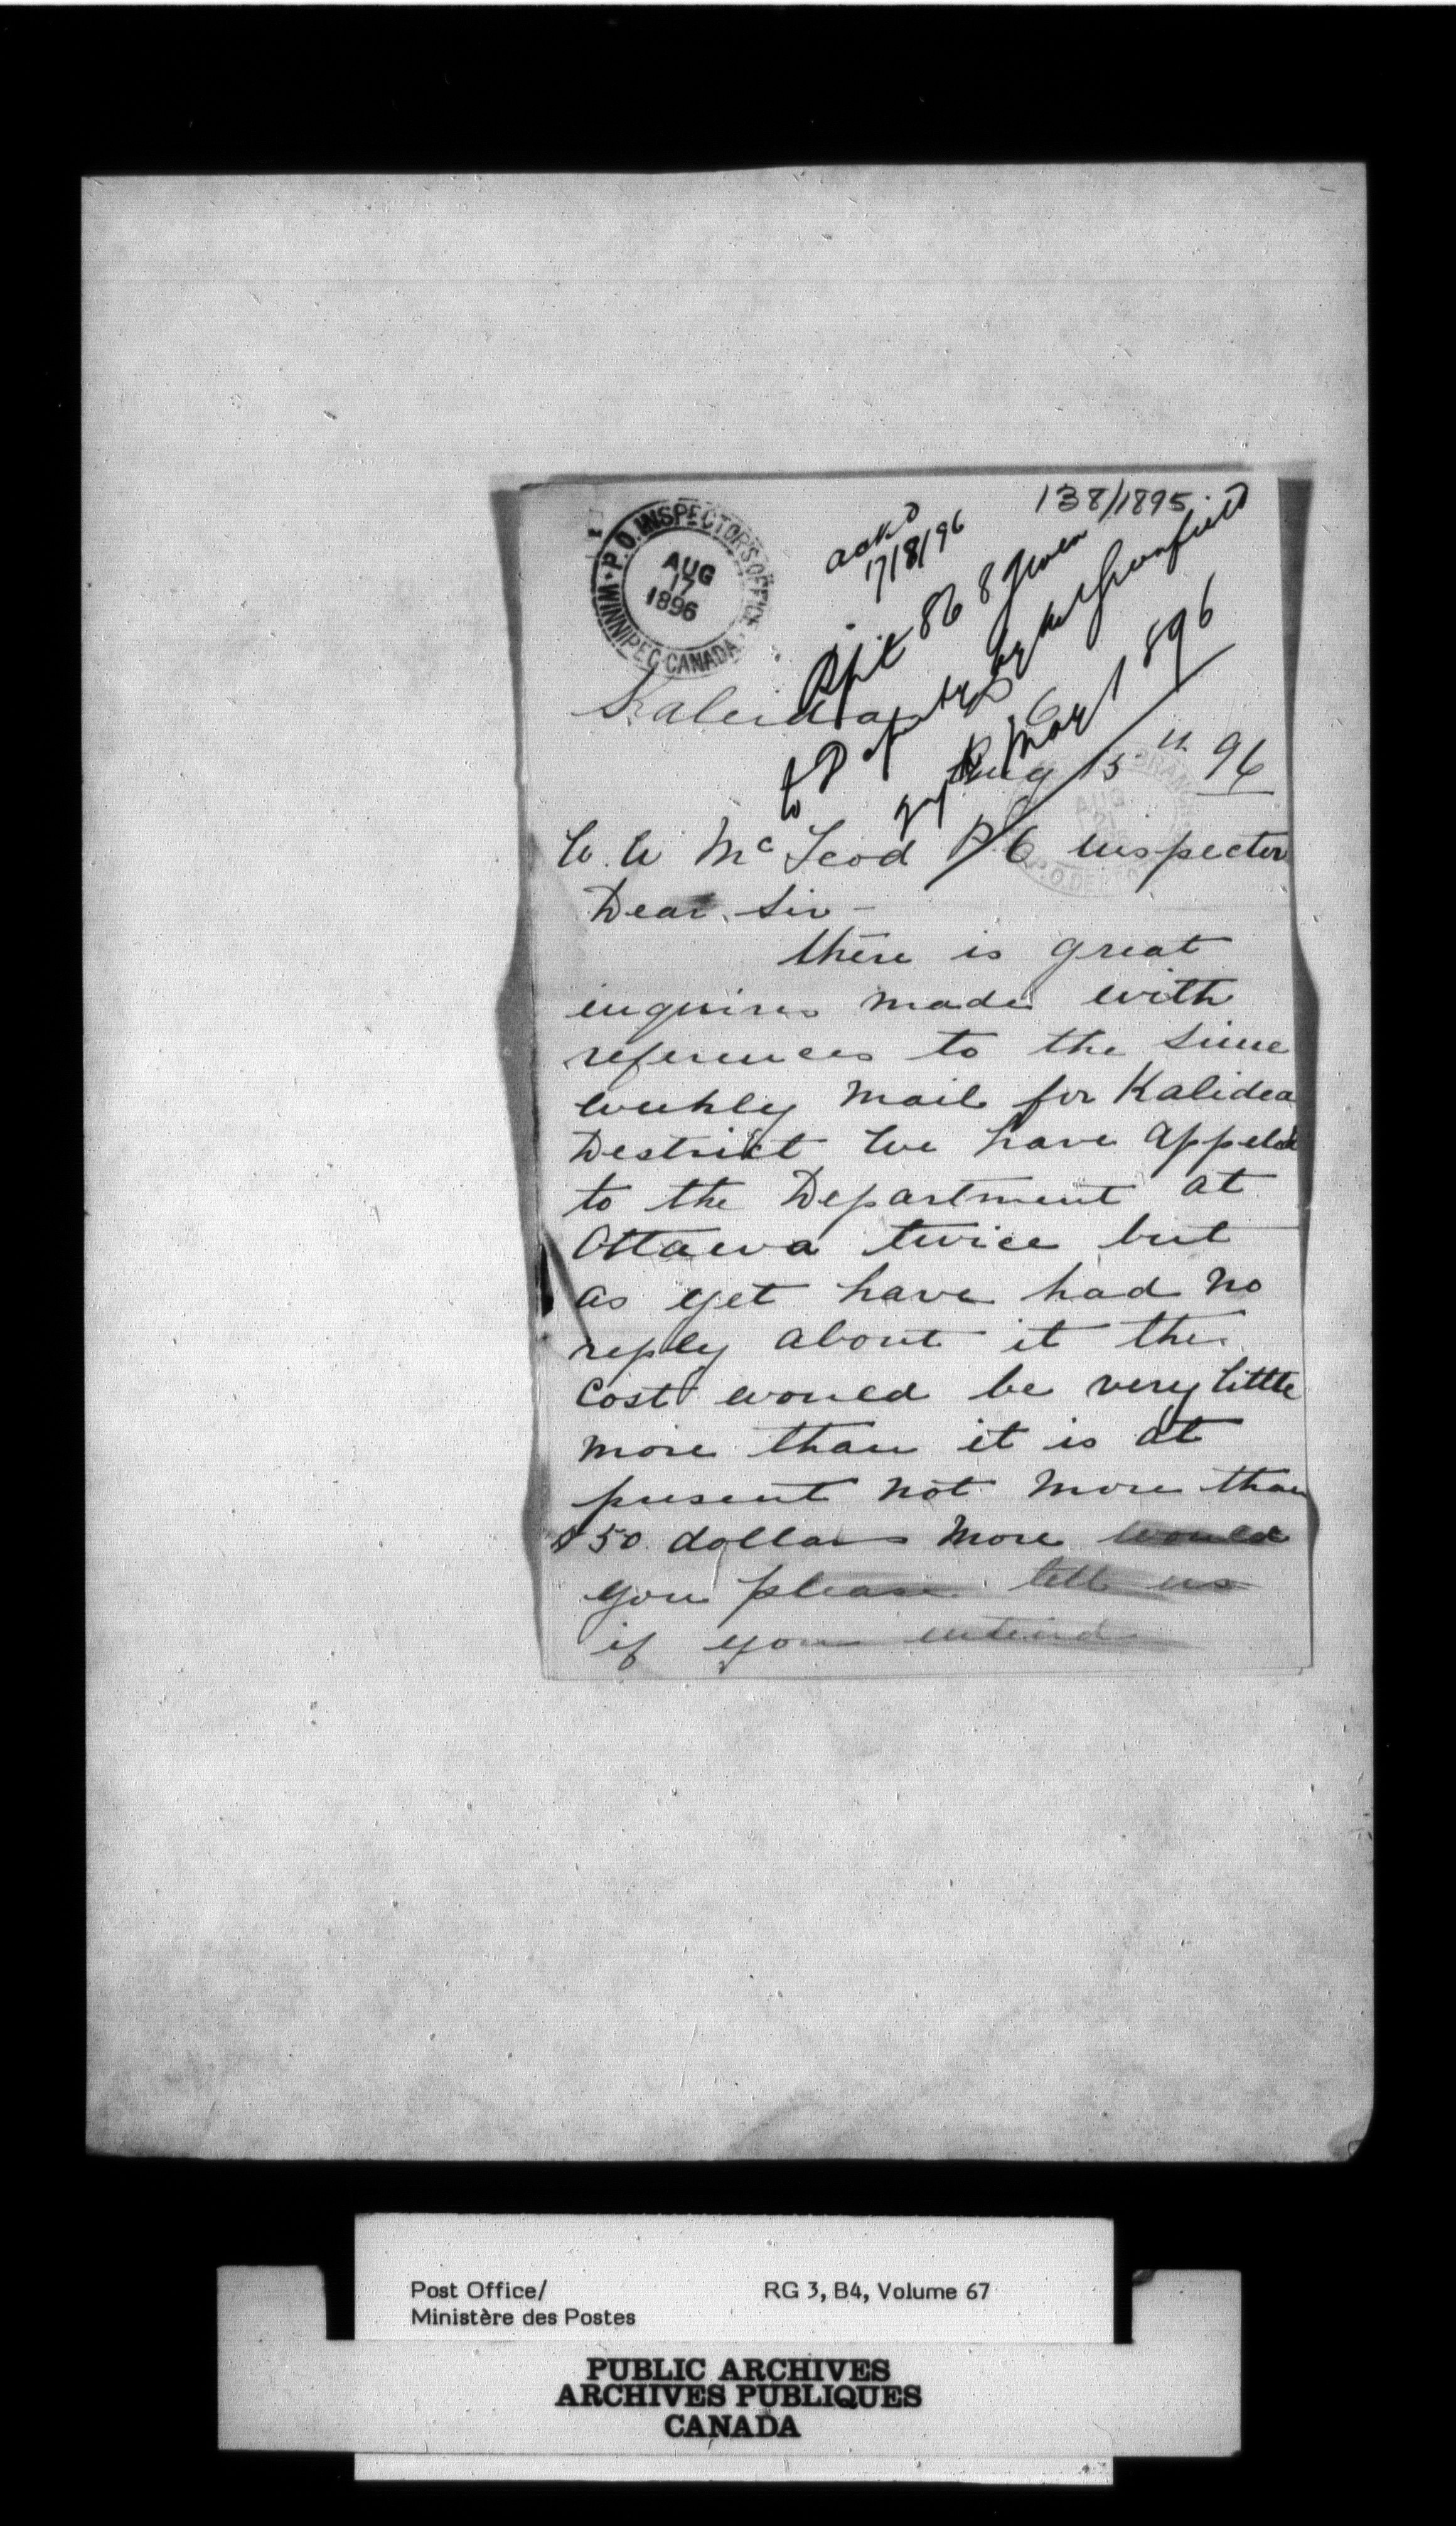 138/1895
P.O. INSPECTOR'S OFFICE
AUG
17
1896
WINNIPEG CANADA
ackd
17/8/96
Rpt 868 given
to by Greenfield
6 May 1896
Kaleida
Aug 15th 96
W. W McLeod P O Inspector
Dear Sir -
there is great
inquires made with
references to the Simie
weekly Mail for Kalidea
Destrict We have Appeled
to the Department at
Ottawa twice but
as yet have had no
reply about it the
Cost would be very little
more than it is at
present not more than
$50 dollars more would
you please tell us
if you intend
Post Office/
Ministère des Postes
RG 3, B4, Volume 67
PUBLIC ARCHIVES
ARCHIVES PUBLIQUES
CANADA